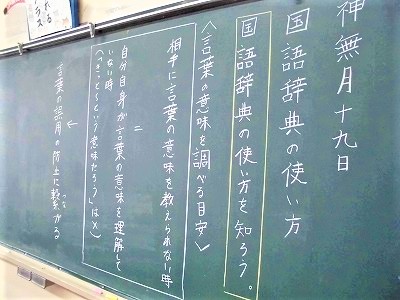 神無月十九日
国語辞典の使い方
国語辞典の使い方を知ろう。
〈言葉の意味を調べる目安〉
相手に言葉の意味を教えられない時
＝
自分自身が言葉の意味を理解して
いない時
(「きっと〜という意味だろう」は×)
↓
言葉の誤用の防止に繋がる
つな